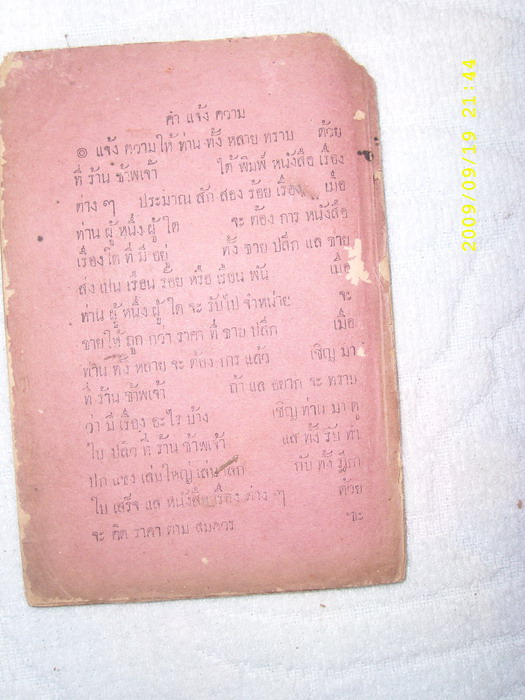 คำ แจ้ง ความ
๏ แจ้ง ความให้ ท่าน ทั้ง หลาย ทราบ ด้วย
ที่ ร้าน ข้าพเจ้า ได้ พิมพ์ หนังสือ เรื่อง
ต่าง ๆ ประมาณ สัก สอง ร้อย เรื่อง เมื่อ
ท่าน ผู้ หนึ่ง ผู้ ใด จะ ต้อง การ หนังสือ
เรื่อง ใด ที่ มี อยู่ ทั้ง ขาย ปลีก แล ขาย
ส่ง เปน เรือน ร้อย หรือ เรือน พัน เมื่อ
ท่าน ผู้ หนึ่ง ผู้ ใด จะ รับไป จำหน่าย จะ
ขายให้ ถูก กว่า ราคา ที่ ขาย ปลีก เมื่อ
ท่าน ทั้ง หลาย จะ ต้อง การ แล้ว เชิญ มา
ที่ ร้าน ข้าพเจ้า ถ้า แล อยาก จะ ทราบ
ว่า มี เรื่อง อะไร บ้าง เชิญ ท่าน มา ดู
ใบ ปลิว ที่ ร้าน ข้าพเจ้า แล ทั้ง รับ ทำ
ปก แขง เล่มใหญ่ เล่มเล็ก กับ ทั้ง ฎีกา
ใบ เสร็จ แล หนังสือ เรื่อง ต่าง ๆ ด้วย
จะ คิด ราคา ตาม สมควร ขะ
2009/09/19 21:44